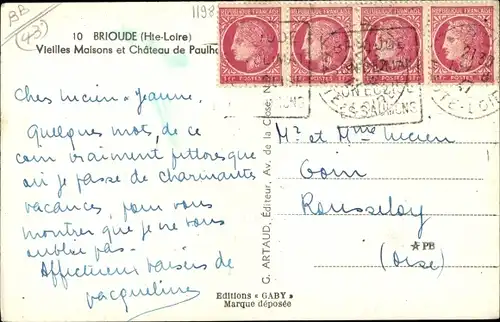 BB
(43)
1198
10 BRIOUDE (Hte-Loire)
Vieilles Maisons et Château de Paulha
REPUBLIQUE FRANÇAISE
1F POSTES 1F
BRIOUDE
SON EGLISE
SES SAUMONS
HTE-LOIRE
Chers Lucien - Jeanne,
Quelques mots, de ce
coin vraiment pittoresque
où je passe de charmantes
vacances, pour vous
montrer que je ne vous
oublie pas -
Affectueux baisers de
Jacqueline
G. ARTAUD, Éditeur, Av. de la Close, N
Mr et Mme Lucien
Rousseloy
(Oise)
PB
Editions « GABY »
Marque déposée